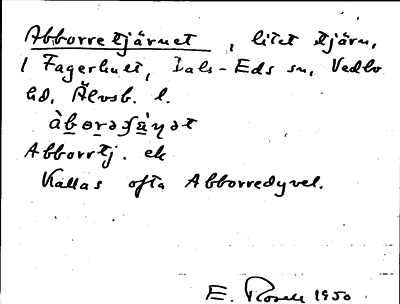 Abborretjärnet, litet tjärn,
i Fagerhult, Dals-Eds sn, Vedbo
hd, Älvsb. l.
àbərəʃä̀ŋət
Abborrtj. ek
Kallas ofta Abborredyvel.
E. Rosell 1950